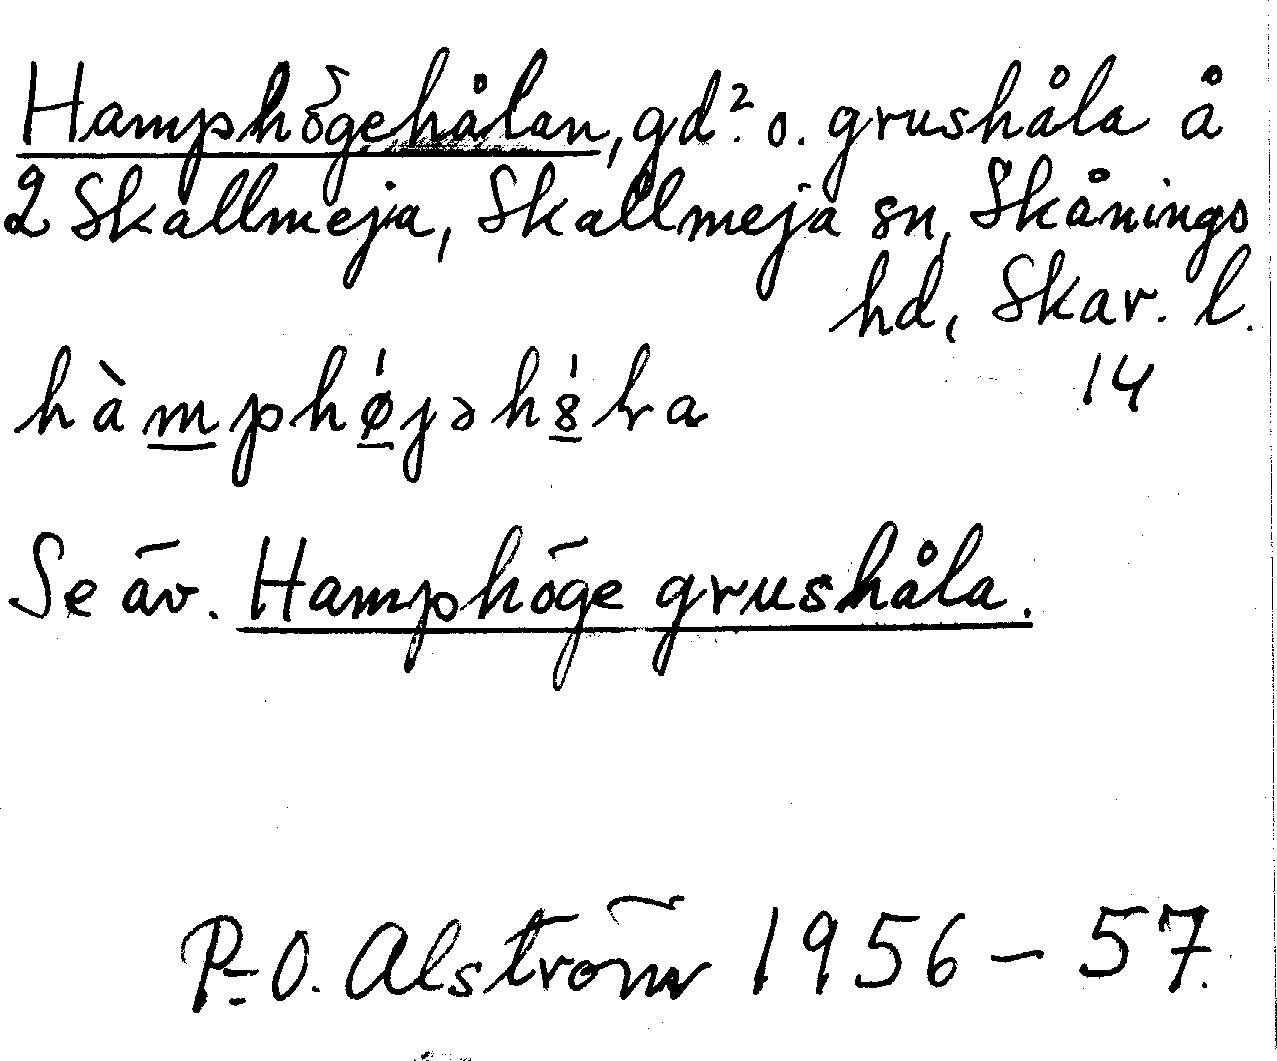 Hamphögehålan, gd². o. grushåla å
2 Skallmeja, Skallmeja sn, Skånings
hd, Skar. l.
14
hàmphǿ̱jəhṓ̱ha
Se äv. Hamphöge grushåla.
P.-O. Alström 1956-57.